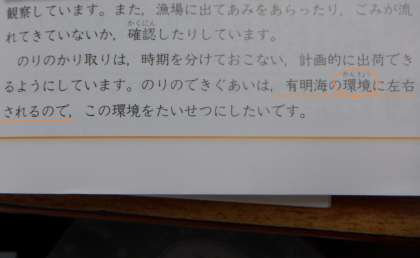 観察しています。また，漁場に出てあみをあらったり，ごみが流
れてきていないか，確認したりしています。
のりのかり取りは，時期を分けておこない，計画的に出荷でき
るようにしています。のりのできぐあいは，有明海の環境に左右
されるので，この環境をたいせつにしたいです。